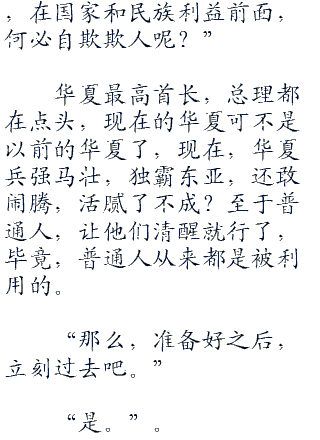 ，在国家和民族利益前面，
何必自欺欺人呢？”
华夏最高首长，总理都
在点头，现在的华夏可不是
以前的华夏了，现在，华夏
兵强马壮，独霸东亚，还敢
闹腾，活腻了不成？至于普
通人，让他们清醒就行了，
毕竟，普通人从来都是被利
用的。
“那么，准备好之后，
立刻过去吧。”
“是。”。